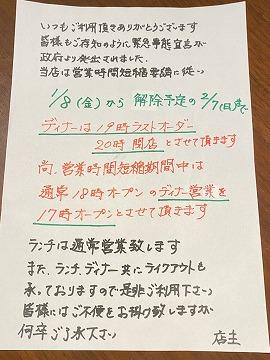 いつもご利用頂きありがとうございます
皆様もご存知のように緊急事態宣言が
政府より発出されました。
当店は営業時間短縮要請に従い
1/8(金)から 解除予定の2/7(日)まで
ディナーは19時ラストオーダー
20時閉店とさせて頂きます
尚、営業時間短縮期間中は
通常18時オープンのディナー営業を
17時オープンとさせて頂きます
ランチは通常営業致します
また、ランチ、ディナー共にテイクアウトも
承っておりますので是非ご利用下さい
皆様にはご不便をお掛け致しますが
何卒ご了承下さい
店主